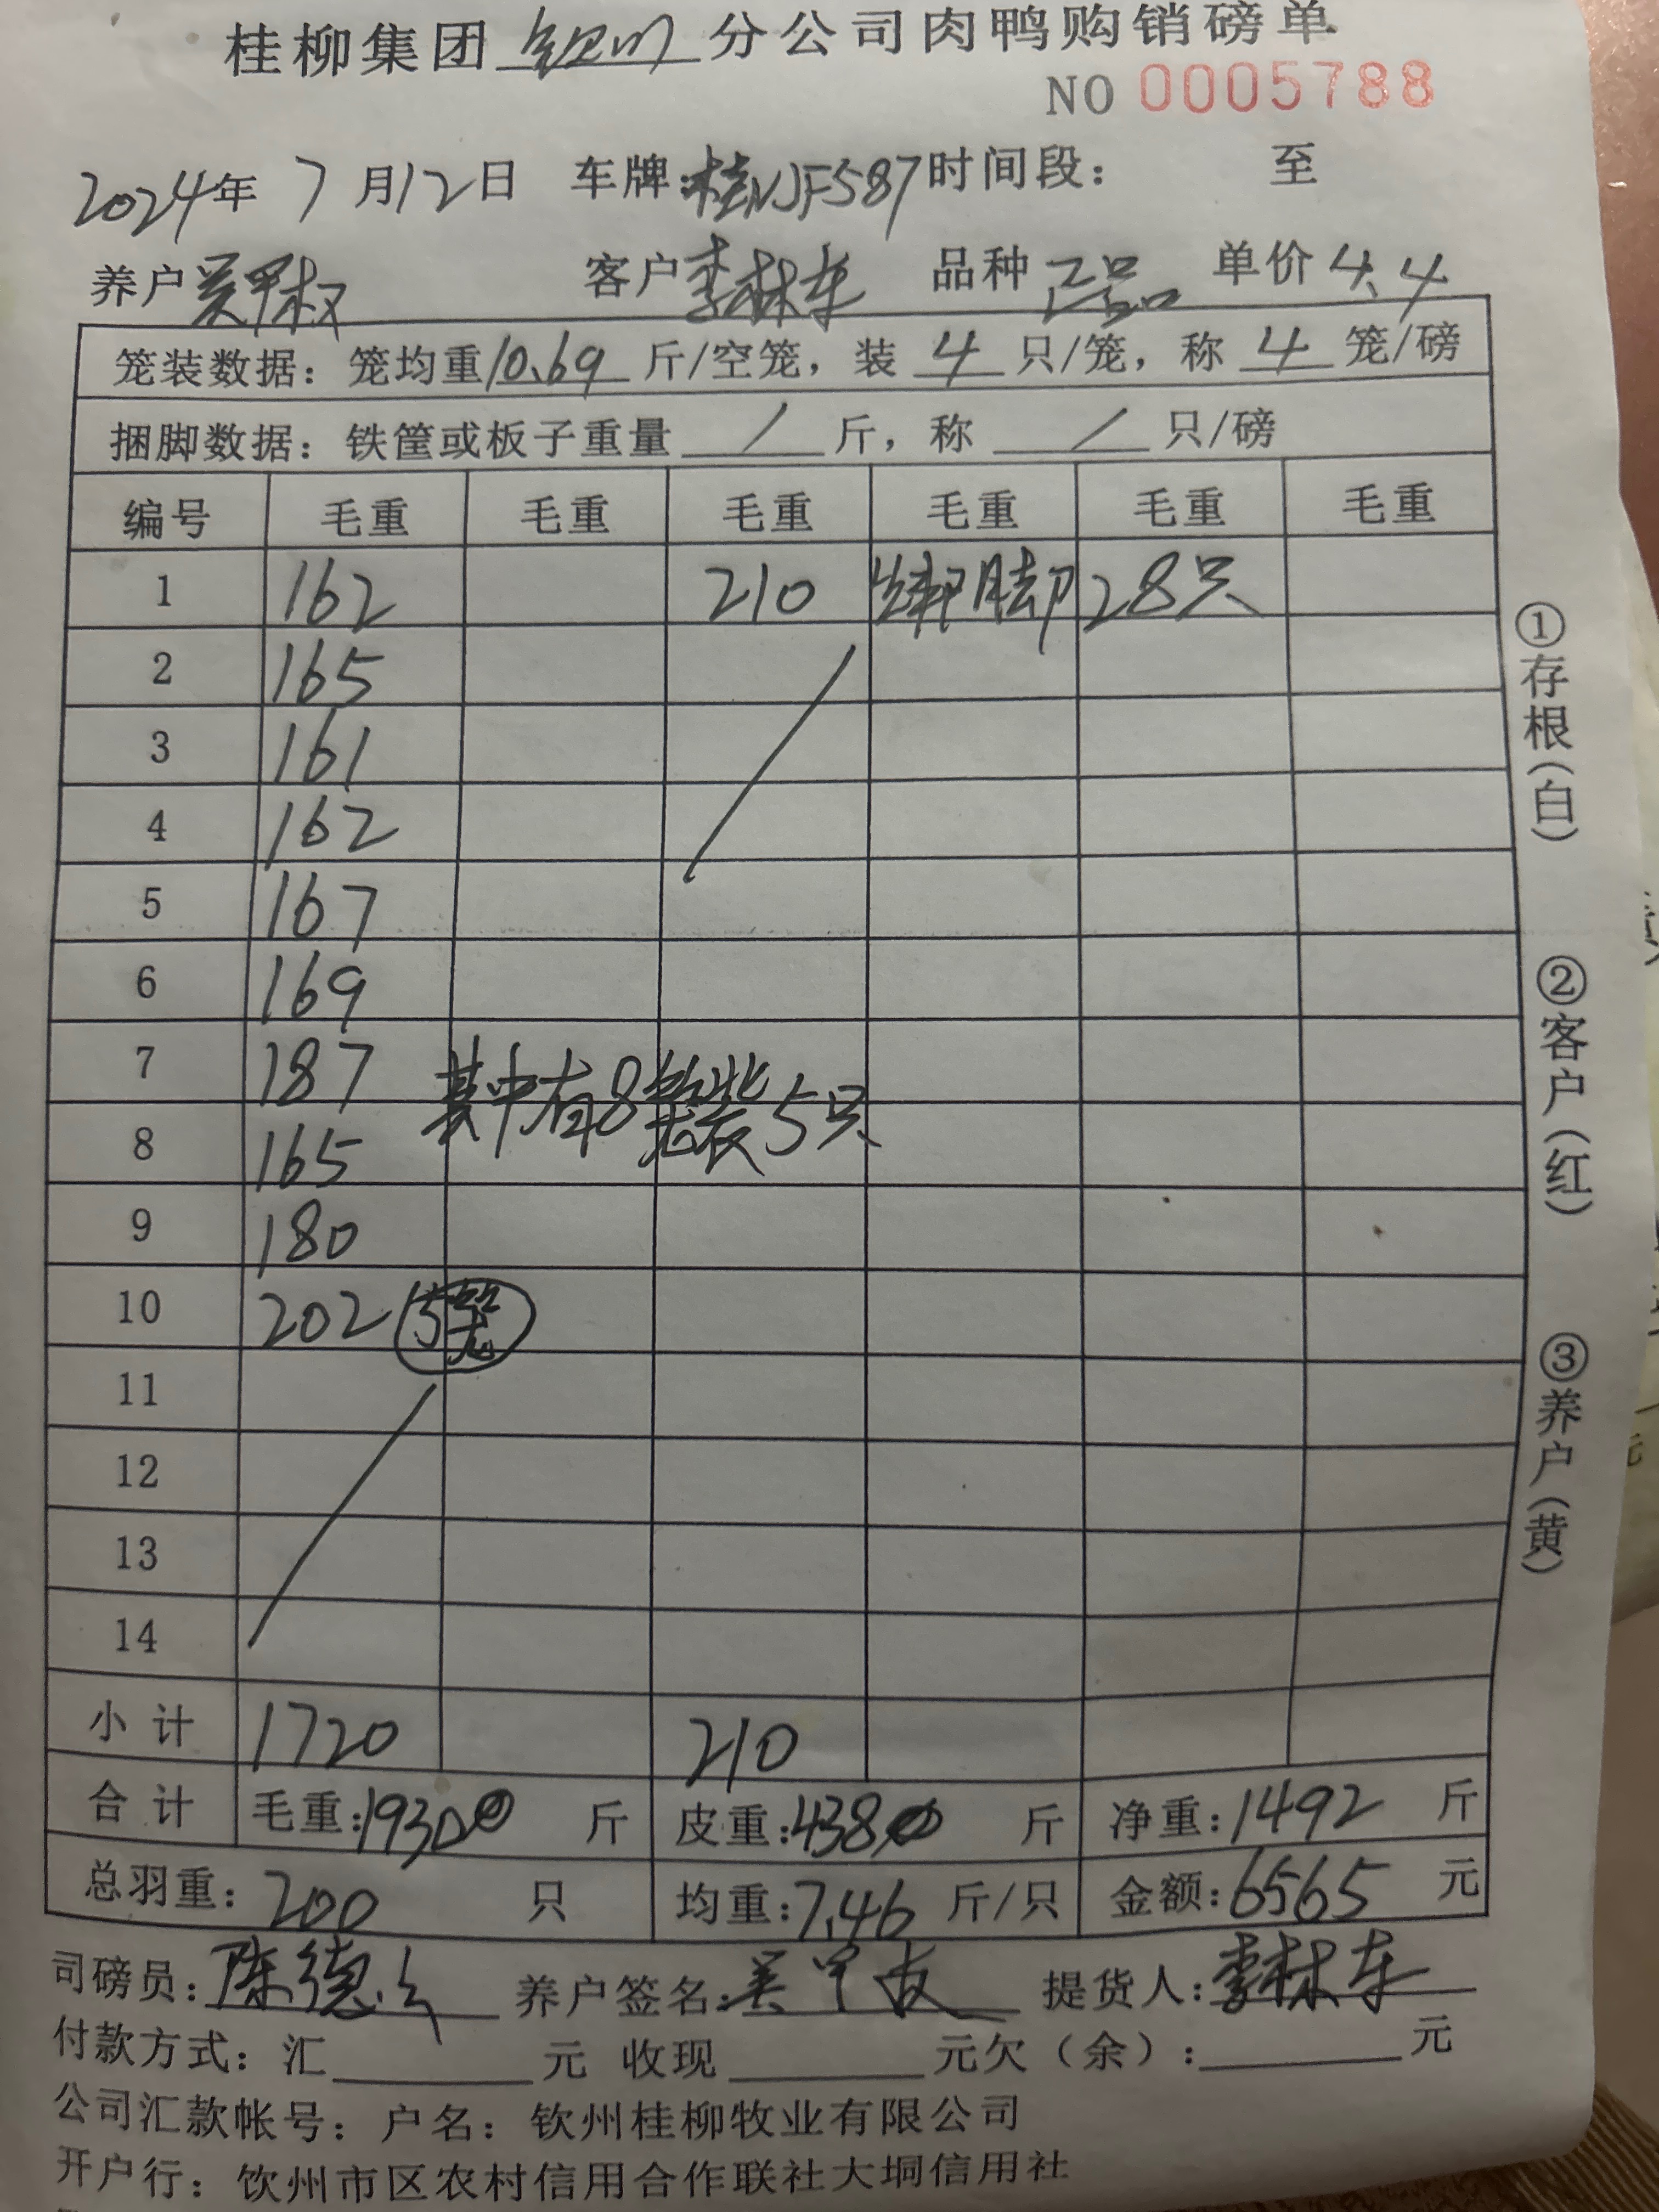 桂柳集团 钦州 分公司肉鸭购销磅单
NO 0005788
2024年 7月12日 车牌:桂NJF587 时间段: 至
养户 客户 李林车 品种 正品 单价 4.4
笼装数据: 笼均重10.69斤/空笼, 装 4 只/笼, 称 4 笼/磅
捆脚数据: 铁筐或板子重量 / 斤, 称 / 只/磅
编号 毛重 毛重 毛重 毛重 毛重 毛重
1 162 210 绑脚 28只
2 165
3 161
4 162
5 167
6 169
7 187 其中有8笼装5只
8 165
9 180
10 202 (5笼)
11
12
13
14
小计 1720 210
合计 毛重:1930 斤 皮重:438 斤 净重:1492 斤
总羽重: 200 只 均重:7.46 斤/只 金额:6565 元
司磅员: 陈德 养户签名: 提货人: 李林车
付款方式: 汇 元 收现 元欠(余): 元
公司汇款帐号: 户名: 钦州桂柳牧业有限公司
开户行: 钦州市区农村信用合作联社大垌信用社
①存根(白)
②客户(红)
③养户(黄)